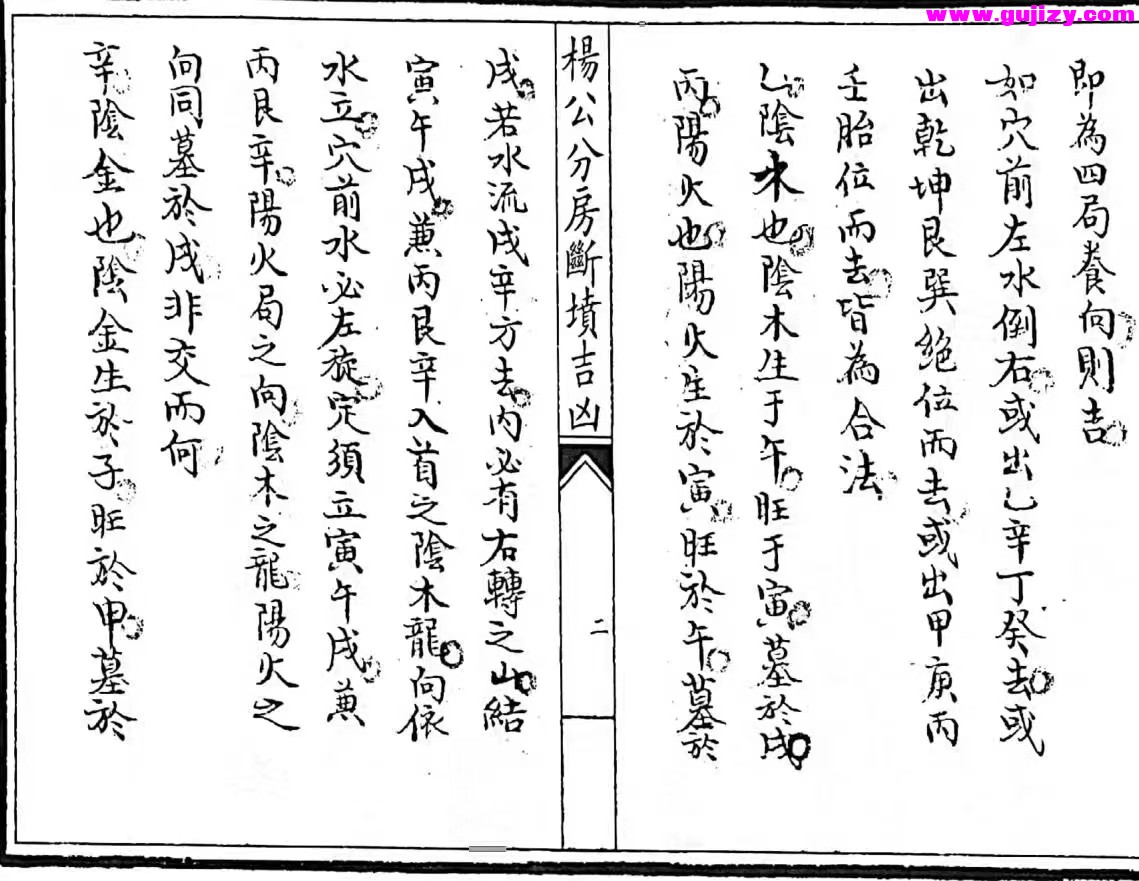 www.gujizy.com
即為四局養向則吉
如穴前左水倒右或出乙辛丁癸去或
出乾坤艮巽絶位而去或出甲庚丙
壬胎位而去皆為合法
乙陰木也陰木生于午旺于寅墓於戌
丙陽火也陽火生於寅旺於午墓於
楊公分房斷墳吉凶
二
戌若水流戌辛方去内必有右轉之山結
寅午戌兼丙艮辛入首之陰木龍向依
水立穴前水必左旋定須立寅午戌兼
丙艮辛陽火局之向陰木之龍陽火之
向同墓於戌非交而何
辛陰金也陰金生於子旺於申墓於